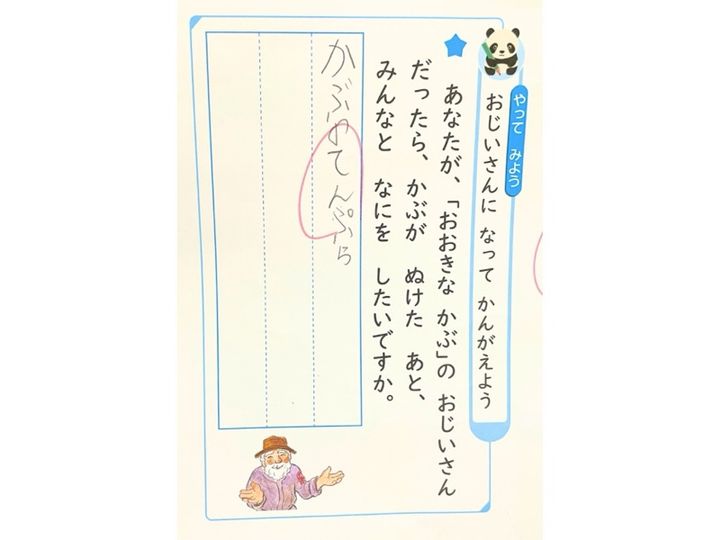 やって みよう
おじいさんに なって かんがえよう
あなたが、「おおきな かぶ」の おじいさん
だったら、かぶが ぬけた あと、
みんなと なにを したいですか。
かぶのてんぷら